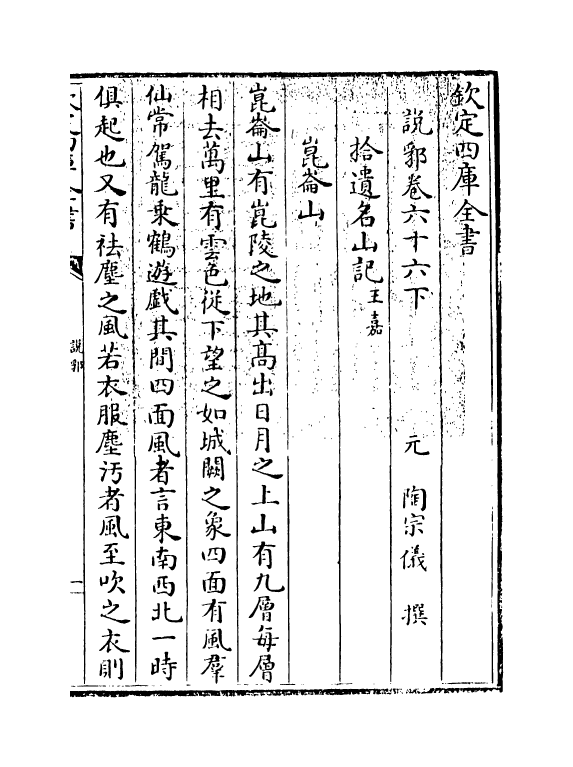 欽定四庫全書
說郛卷六十六下　元　陶宗儀　撰
拾遺名山記王嘉
崑崙山
崑崙山有崑陵之地其高出日月之上山有九層每層
相去萬里有雲色從下望之如城闕之象四面有風羣
仙常駕龍乗鶴遊戯其間四面風者言東南西北一時
俱起也又有祛塵之風若衣服塵汚者風至吹之衣則
說郛
一